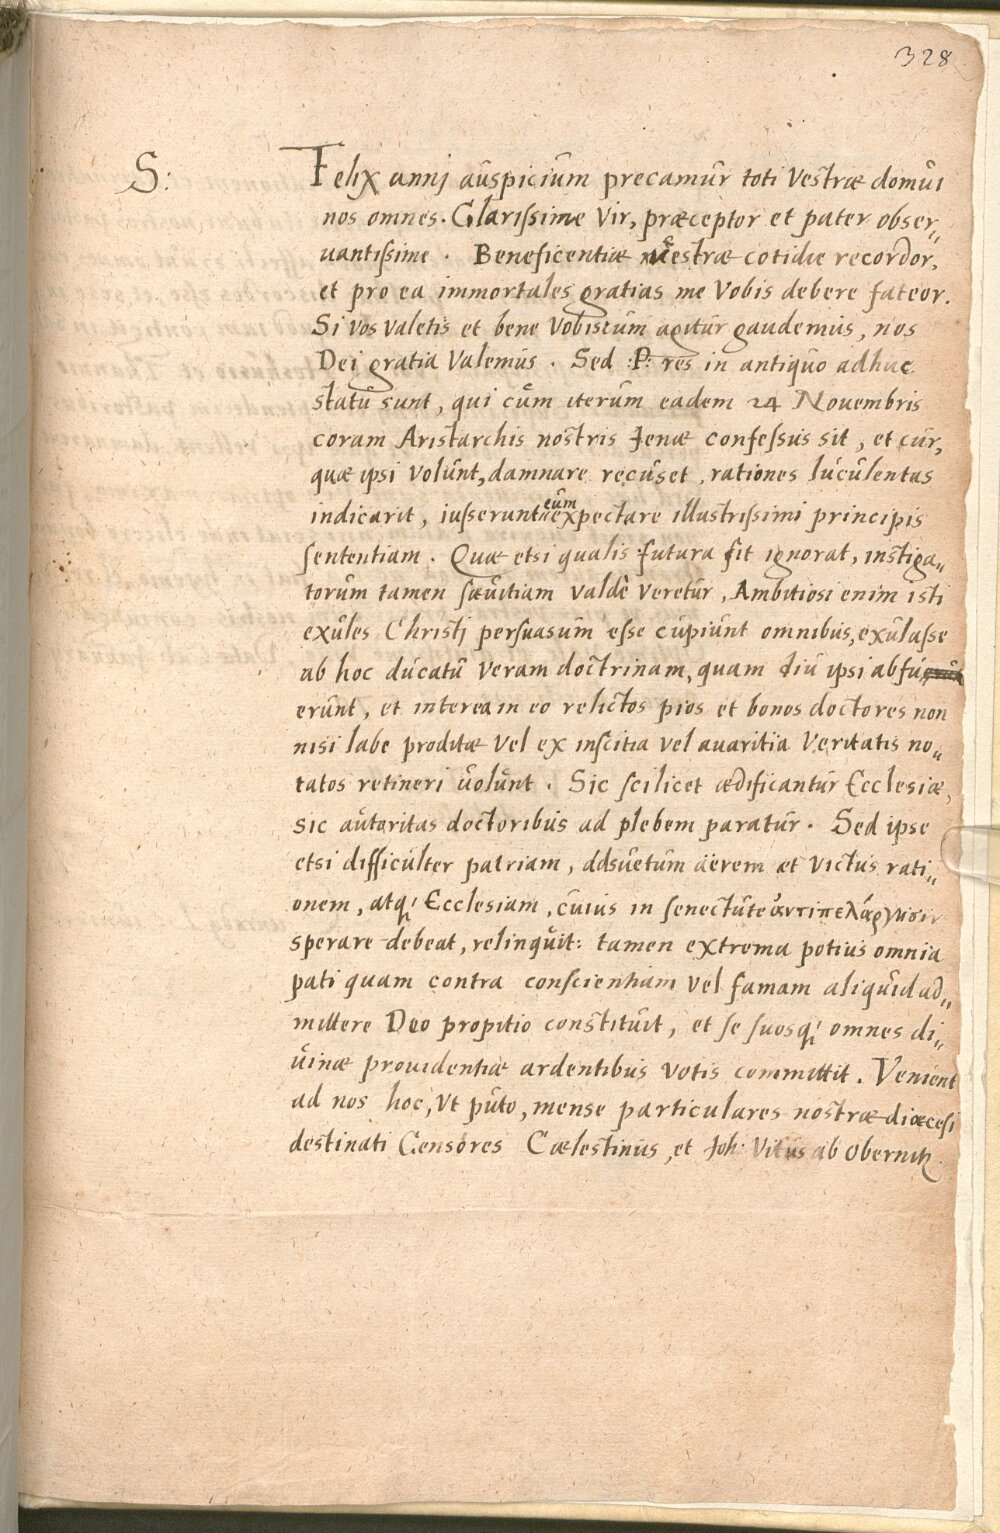 328
S:
Felix annj auspicium precamur toti Vestræ domui
nos omnes. Clarissime Vir, præceptor et pater obser„
uantissime . Beneficentiæ Vestræ cotidie recordor,
et pro ea immortales gratias me Vobis debere fateor.
Si vos valetis et bene Vobiscum agitur gaudemus, nos
Dei gratia Valemus . Sed :P: res in antiquo adhuc
statu sunt, qui cum iterum eadem 24 Nouembris
coram Aristarchis nostris Jenæ confessus sit, et cur,
quæ ipsi volunt, damnare recuset, rationes luculentas
indicarit, iusserunt eum expectare illustrissimi principis
sententiam. Quæ etsi qualis futura sit ignorat, instiga„
torum tamen sæuitiam valdè veretur, Ambitiosi enim isti
exules Christj persuasum esse cupiunt omnibus, exulasse
ab hoc ducatu veram doctrinam, quam diu ipsi abfu
erunt, et interea in eo relictos pios et bonos doctores non
nisi labe proditæ vel ex inscitia vel auaritia Veritatis no„
tatos retineri uolunt . Sic scilicet ædificantur Ecclesiæ,
sic autoritas doctoribus ad plebem paratur. Sed ipse
etsi difficulter patriam, adsuetum äerem et victus rati„
onem, atq; Ecclesiam, cuius in senectute ἀντιπελάργησιν
sperare debeat, relinquit: tamen extrema potius omnia
pati quam contra conscientiam vel famam aliquid ad„
mittere Deo propitio constituit, et se suosq; omnes di„
uinæ prouidentiæ ardentibus votis committit. Venient
ad nos hoc, vt puto, mense particulares nostræ diœcesi
destinati Censores Cælestinus, et Joh: Vitus ab Obernitz